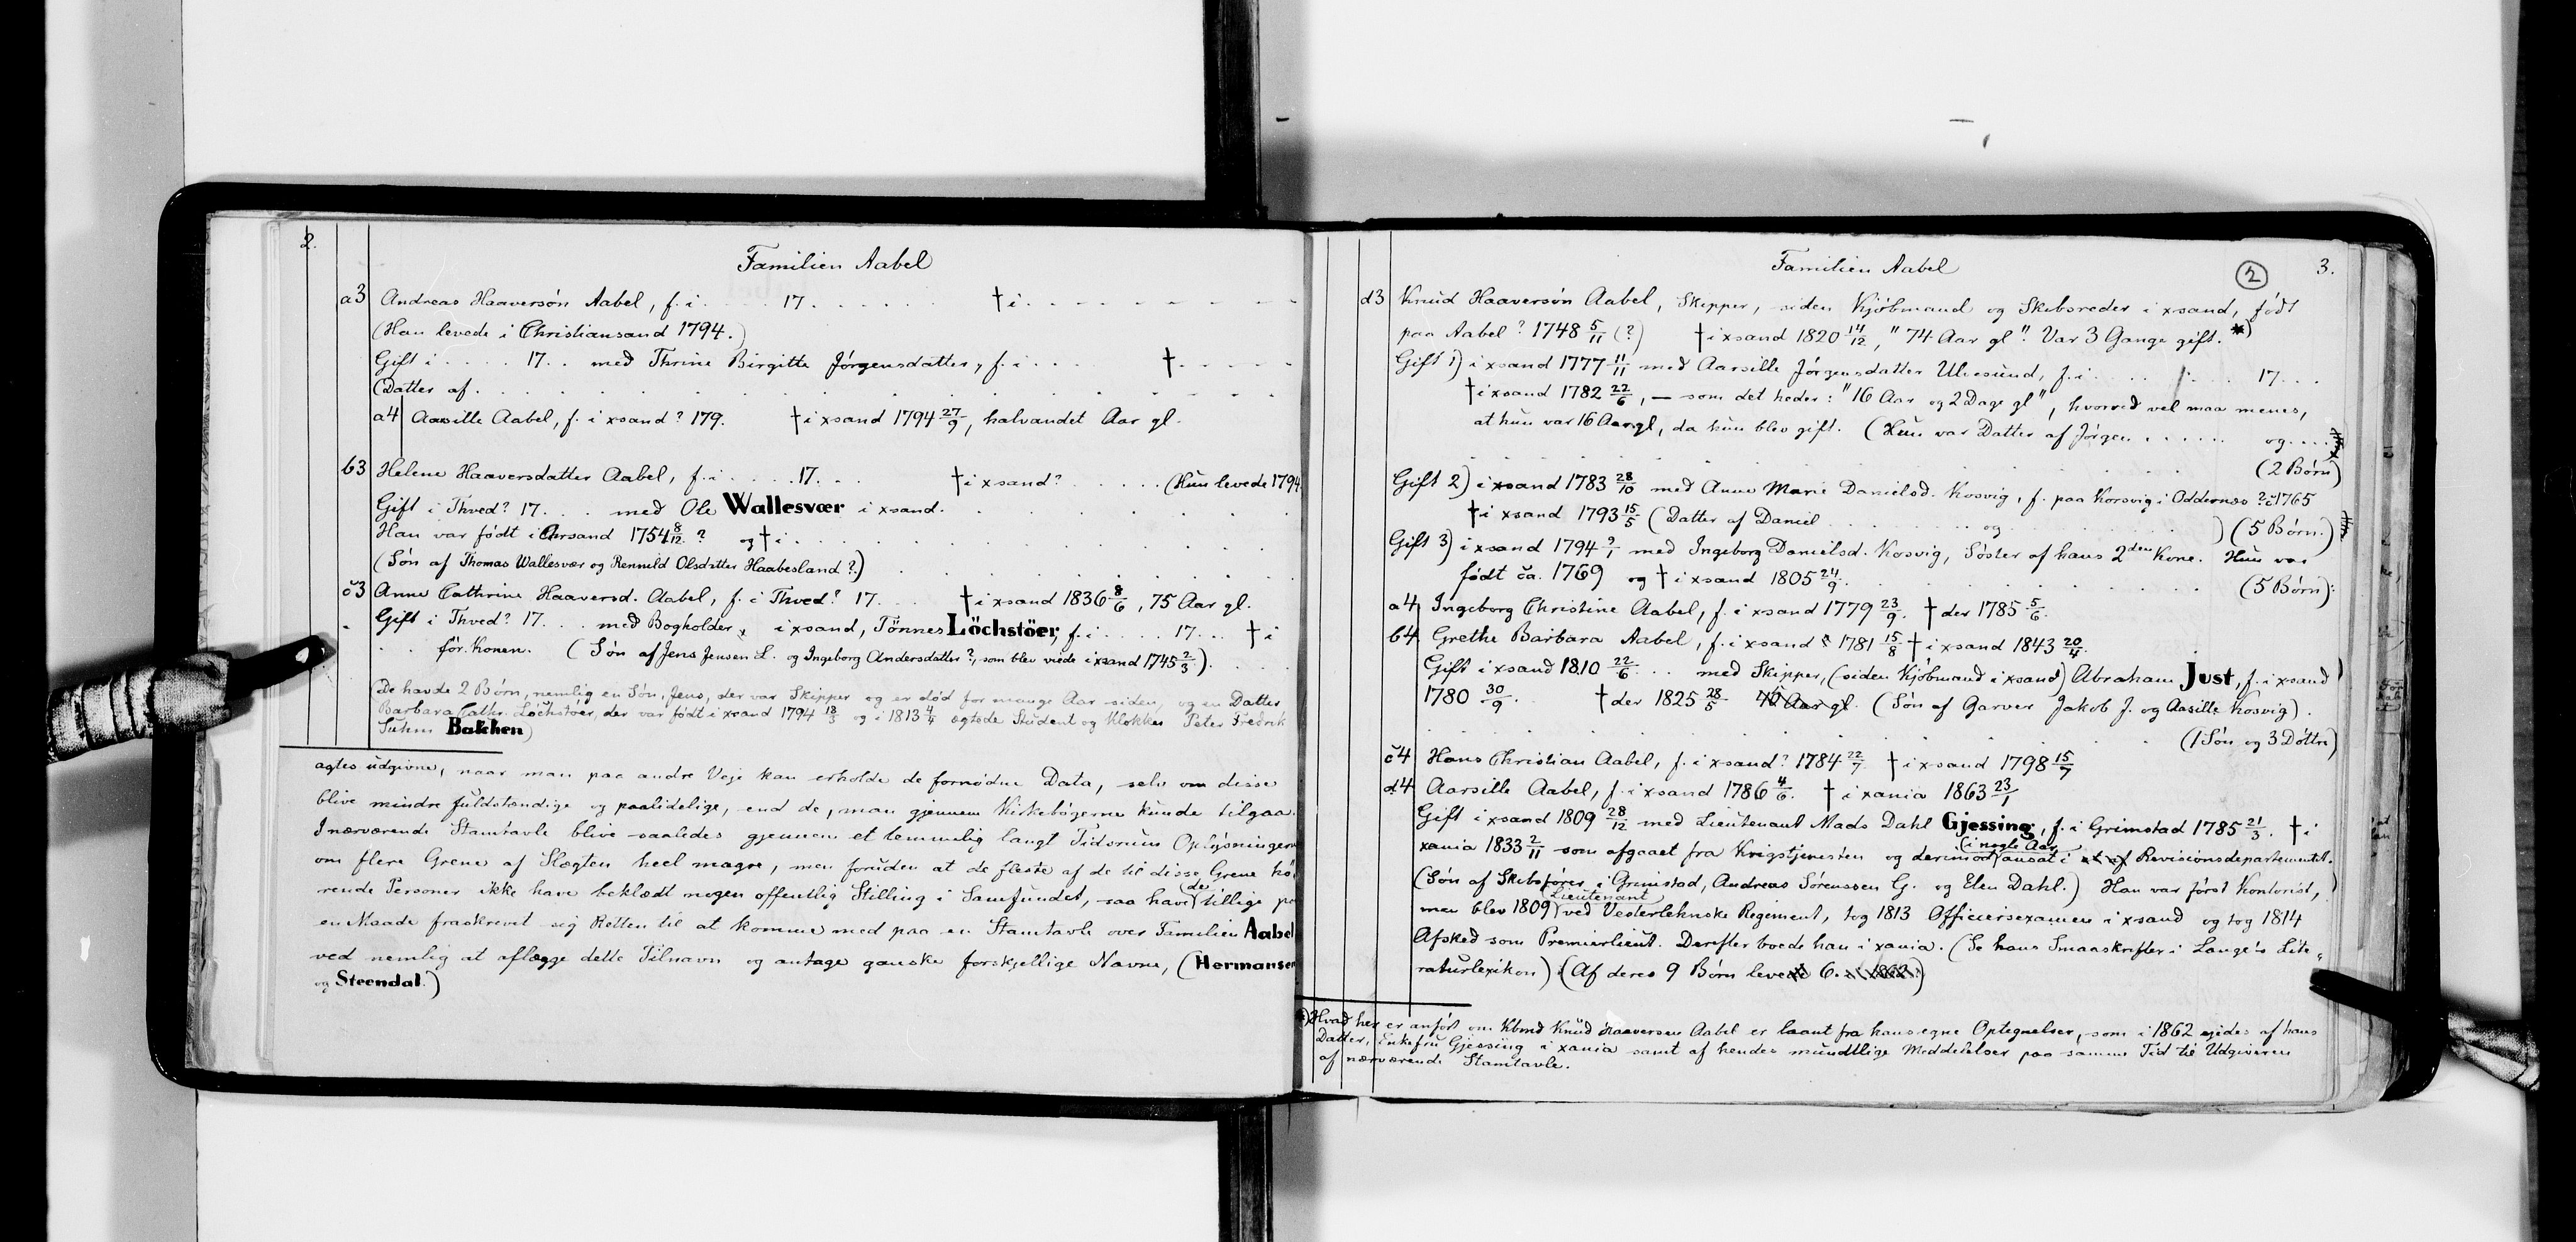 2.
Familien Aabel
a3 Andreas Haaversøn Aabel, f. i . . . . 17 . . . . . . † i . . . . . . . . . .
(Han levede i Christiansand 1794.)
Gift i . . . . 17 . . med Thrine Birgitte Jørgensdatter, f. i . . . † . . . . .
(Datter af . . . . . . . . . .
a4 Aasille Aabel, f. i xsand? 179. † i xsand 1794 27/9, halvandet Aar gl.
b3 Helene Haaversdatter Aabel, f. i . . . . 17. . . † i xsand? . . . . . (Hun levede 1794
Gift i Thved? 17. . . med Ole Wallesvær i xsand. . . . .
Han var født i Chrsand 1754 8/12 ? og † i . . . . . . . . . .
(Søn af Thomas Wallesvær og Rennild Olsdatter Haabesland ?.) . . . . .
c3 Anne Cathrine Haaversd. Aabel, f. i Thved? 17. . . . † i xsand 1836 8/6, 75 Aar gl.
Gift i Thved? 17. . . med Bogholder i xsand, Tönnes Löchstöer, f. i . . . . 17. . . † i
. . før Konen. (Søn af Jens Jensen L. og Ingeborg Andersdatter?, som blev viede i xsand 1745 2/3). . . .
(De havde 2 Børn, nemlig en Søn, Jens, der var Skipper og er død for mange Aar siden, og en Datter
Barbara Cathr. Löchstöer, der var født i xsand 1794 18/3 og i 1813 4/5 ægtede Student og Klokker Peter Fredrik
Suhm Bakken)
agtes udgivne, naar man paa andre Veje kan erholde de fornødne Data, selv om disse
blive mindre fuldstændige og paalidelige, end de, man gjennem Kirkebøgerne kunde tilgaa.
I nærværende Stamtavle blive saaledes gjennem et temmelig langt Tidsrum Oplysningerne
om flere Grene af Slægten heel magre, men foruden at de fleste af de til disse Grene hø-
rende Personer ikke have beklædt nogen offentlig Stilling i Samfundet, saa have de tillige pa
en Maade fraskrevet sig Retten til at komme med paa en Stamtavle over Familien Aabel
ved nemlig at aflægge dette Tilnavn og antage ganske forskjellige Navne, (Hermansen
og Steendal.)
Familien Aabel
2
3.
d3 Knud Haaversøn Aabel, Skipper, siden Kjøbmand og Skibsreder i xsand, født
paa Aabel? 1748 5/11 (?) † i xsand 1820 14/12, "74 Aar gl". Var 3 Gange gift. *)
Gift 1) i xsand 1777 11/11 med Aarsille Jørgensdatter Ulvesund, f. i . . . . . 17. . .
† i xsand 1782 22/6, — som det heder: "16 Aar og 2 Dage gl", hvorved vel maa menes,
at hun var 16 Aar gl, da hun blev gift. (Hun var Datter af Jørgen . . . . . . og . . . .
(2 Børn)
Gift 2) i xsand 1783 28/10 med Anne Marie Danielsd. Kosvig, f. paa Korsvig i Oddernæs ? c 1765
† i xsand 1793 15/5 (Datter af Daniel . . . . . . . og . . . . ) (5 Børn.)
Gift 3) i xsand 1794 ?/1 med Ingeborg Danielsd. Kosvig, Søster af hans 2den Kone. Hun var
født ca. 1769 og † i xsand 1805 24/9. . . . . . . (5 Børn):
a4 Ingeborg Christine Aabel, f. i xsand 1779 23/9. † der 1785 5/6.
b4 Grethe Barbara Aabel, f. i xsand 1781 15/8 † i xsand 1843 20/4.
Gift i xsand 1810 22/6 . . . med Skipper, (siden Kjøbmand i xsand) Abraham Just, f. i xsand
1780 30/9. † der 1825 28/5 46 Aar gl. (Søn af Garver Jakob J. og Aasille Kosvig).
(1 Søn og 3 Døttre)
c4 Hans Christian Aabel, f. i xsand? 1784 22/7 † i xsand 1798 15/7
d4 Aarsille Aabel, f. i xsand 1786 4/6. † i xania 1863 23/1
Gift i xsand 1809 28/12 med Lieutenant Mads Dahl Gjessing, f. i Grimstad 1785 21/3. † i
xania 1833 2/11 som afgaaet fra Krigstjenesten og derimod (i nogle Aar ansat i Revisionsdepartementet.
(Søn af Skibsfører i Grimstad, Andreas Sørenssen G. og Elen Dahl.) Han var først Kontorist,
men blev 1809 Lieutenant ved Vesterlehnske Regiment, tog 1813 Officiersexamen i xsand og tog 1814
Afsked som Premierlieut. Derefter boede han i xania. (Se hans Smaaskrifter i Lange's Lite-
raturlexikon). (Af deres 9 Børn leve 6. i 1862.)
*) Hvad her er anført om Kbmd Knud Haaversen Aabel er laant fra hans egne Optegnelser, som i 1862 ejedes af hans
Datter, Enkefru Gjessing i xania samt af hendes mundtlige Meddelelser paa samme Tid til Udgiveren
af nærværende Stamtavle.